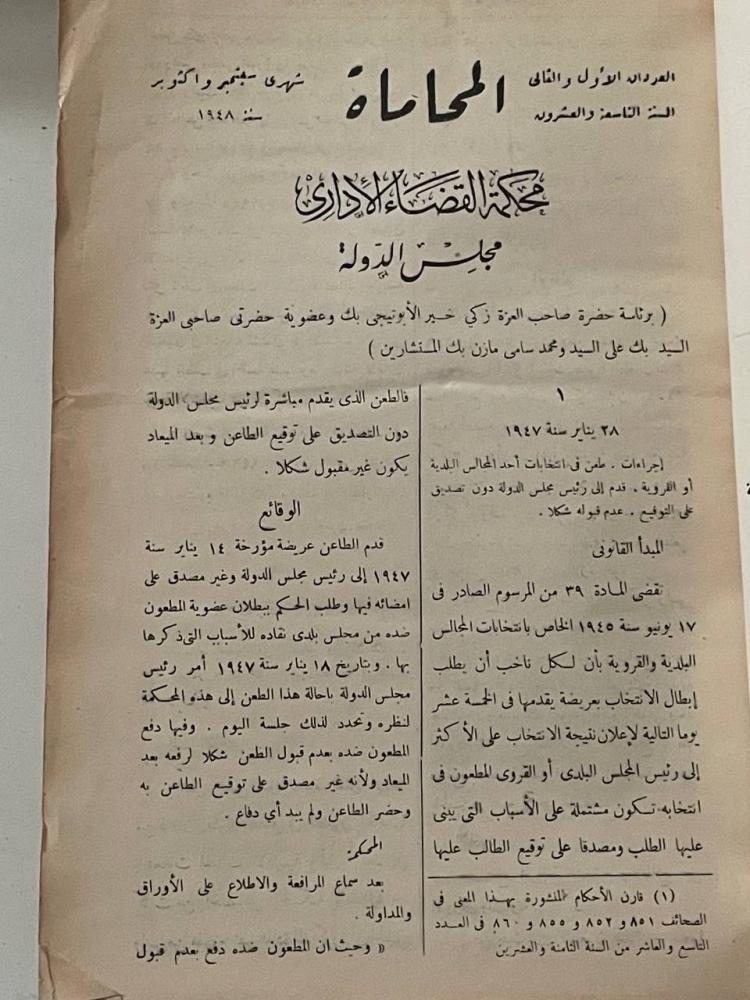 العددان الأول والثانى
السنة التاسعة والعشرون
المحاماة
شهرى سبتمبر واكتوبر
سنة ١٩٤٨
محكمة القضاء الإدارى
مجلس الدولة
( برئاسة حضرة صاحب العزة زكي خير الأبوتيجى بك وعضوية حضرتى صاحبى العزة
السيد بك على السيد ومحمد سامى مازن بك المستشارين )
١
٢٨ يناير سنة ١٩٤٧
إجراءات . طعن فى انتخابات أحد المجالس البلدية
أو القروية . قدم إلى رئيس مجلس الدولة دون تصديق
على التوقيع . عدم قبوله شكلا .
المبدأ القانونى
تقضى المادة ٣٩ من المرسوم الصادر فى
١٧ يونيو سنة ١٩٤٥ الخاص بانتخابات المجالس
البلدية والقروية بأن لكل ناخب أن يطلب
إبطال الانتخاب بعريضة يقدمها فى الخمسة عشر
يوما التالية لإعلان نتيجة الانتخاب على الأكثر
إلى رئيس المجلس البلدى أو القروى المطعون فى
انتخابه تكون مشتملة على الأسباب التى يبنى
عليها الطلب ومصدقا على توقيع الطالب عليها
(١) قارن الأحكام المنشورة بهذا المعنى فى
الصحائف ٨٥١ و ٨٥٢ و ٨٥٥ و ٨٦٠ فى العدد
التاسع والعاشر من السنة الثامنة والعشرين
فالطعن الذى يقدم مباشرة لرئيس مجلس الدولة
دون التصديق على توقيع الطاعن و بعد الميعاد
يكون غير مقبول شكلا .
الوقائع
قدم الطاعن عريضة مؤرخة ١٤ يناير سنة
١٩٤٧ إلى رئيس مجلس الدولة وغير مصدق على
امضائه فيها وطلب الحكم ببطلان عضوية المطعون
ضده من مجلس بلدى نقاده للأسباب التى ذكرها
بها . وبتاريخ ١٨ يناير سنة ١٩٤٧ أمر رئيس
مجلس الدولة باحالة هذا الطعن إلى هذه المحكمة
لنظره وتحدد لذلك جلسة اليوم . وفيها دفع
المطعون ضده بعدم قبول الطعن شكلا لرفعه بعد
الميعاد ولأنه غير مصدق على توقيع الطاعن به
وحضر الطاعن ولم يبد أي دفاع .
المحكمة
بعد سماع المرافعة والاطلاع على الأوراق
والمداولة .
« وحيث ان المطعون ضده دفع بعدم قبول